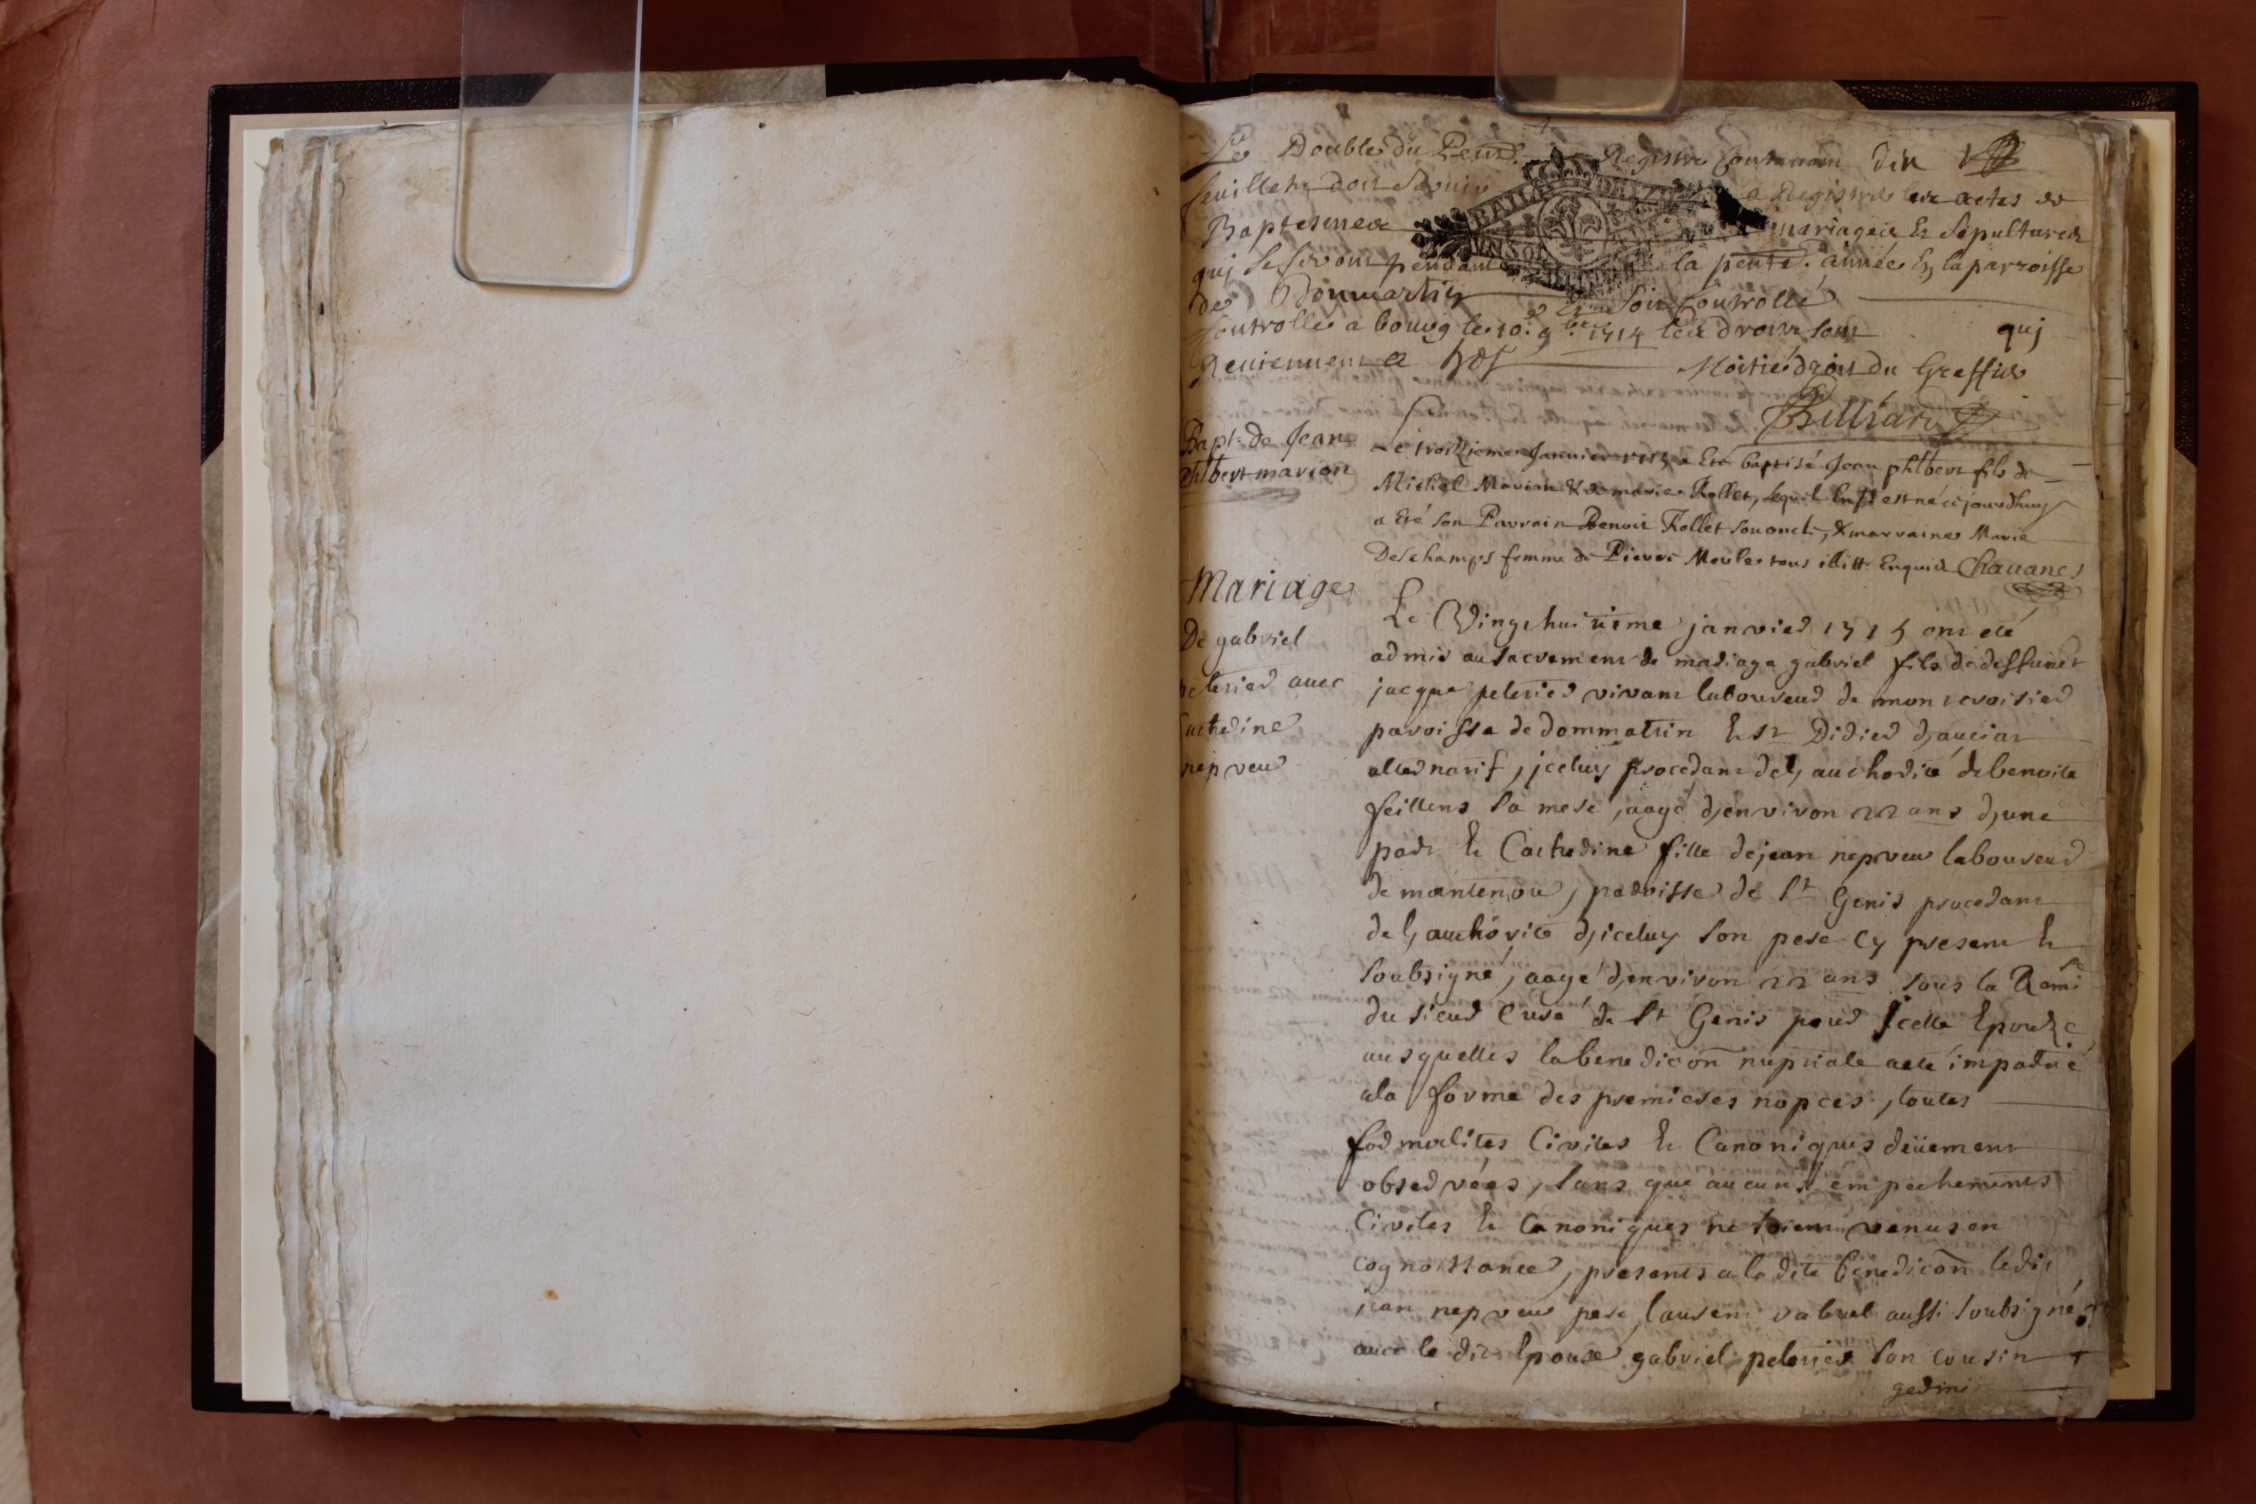 Le Double du Pent. Registre Contenant dix
feuillets doit servir a Registrer les actes de
Baptesmes mariages Et Sepultures
qui se feront pendant la pente. année En la parroisse
de Donmartin Et Soit Controllé
Controllé a bourg le 10e 9bre 1714 les droits sont qui
Reviennent a
Moitié droit du Greffier
Billiard
BAILL
Bapt. de Jean
Phlbert marion
Le troizieme Janvier 1715 a Eté baptisé Jean phlbert fils de
Michel Marion & de marie Follet, lequel Enft est né cejourdhuy
a Eté son Parrain Benoit Follet son oncle, & marraine Marie
Deschamps femme de Pierre Moule tous illitt. Enquis Chavanes
Mariage
De gabriel
peletier avec
Catherine
nepveu
Le Vingt huitième janvier 1715 ont eté
admis au sacrement de mariage gabriel fils de deffunct
jacque peletier vivant laboureur de mon
paroisse de dommartin Et St Didier d'auciat
alternatif, jceluy procedant de l'authorité de benoite
feillens sa mere, aagé d'environ 22 ans d'une
part Et Catherine fille de jean nepveu laboureur
de mantenou, paroisse de St Genis procedant
de l'authorité d'iceluy son pere cy present Et
soubsigné, aagé d'environ 22 ans sous la Remise
du sieur Curé de St Genis pour Jcelle Epouze
ausquelles la benedicon nuptiale a eté impartie
a la forme des premieres nopces, toutes
formalites Civiles Et Canoniques deüement
observées, sans que aucuns empechements
Civiles Et Canoniques ne soient venus en
cognoissance, presents a la dite benedicon ledit
jean nepveu pere, laurent vabuel aussi soubsigné
avec le dit Epoux gabriel peletier son cousin
germ